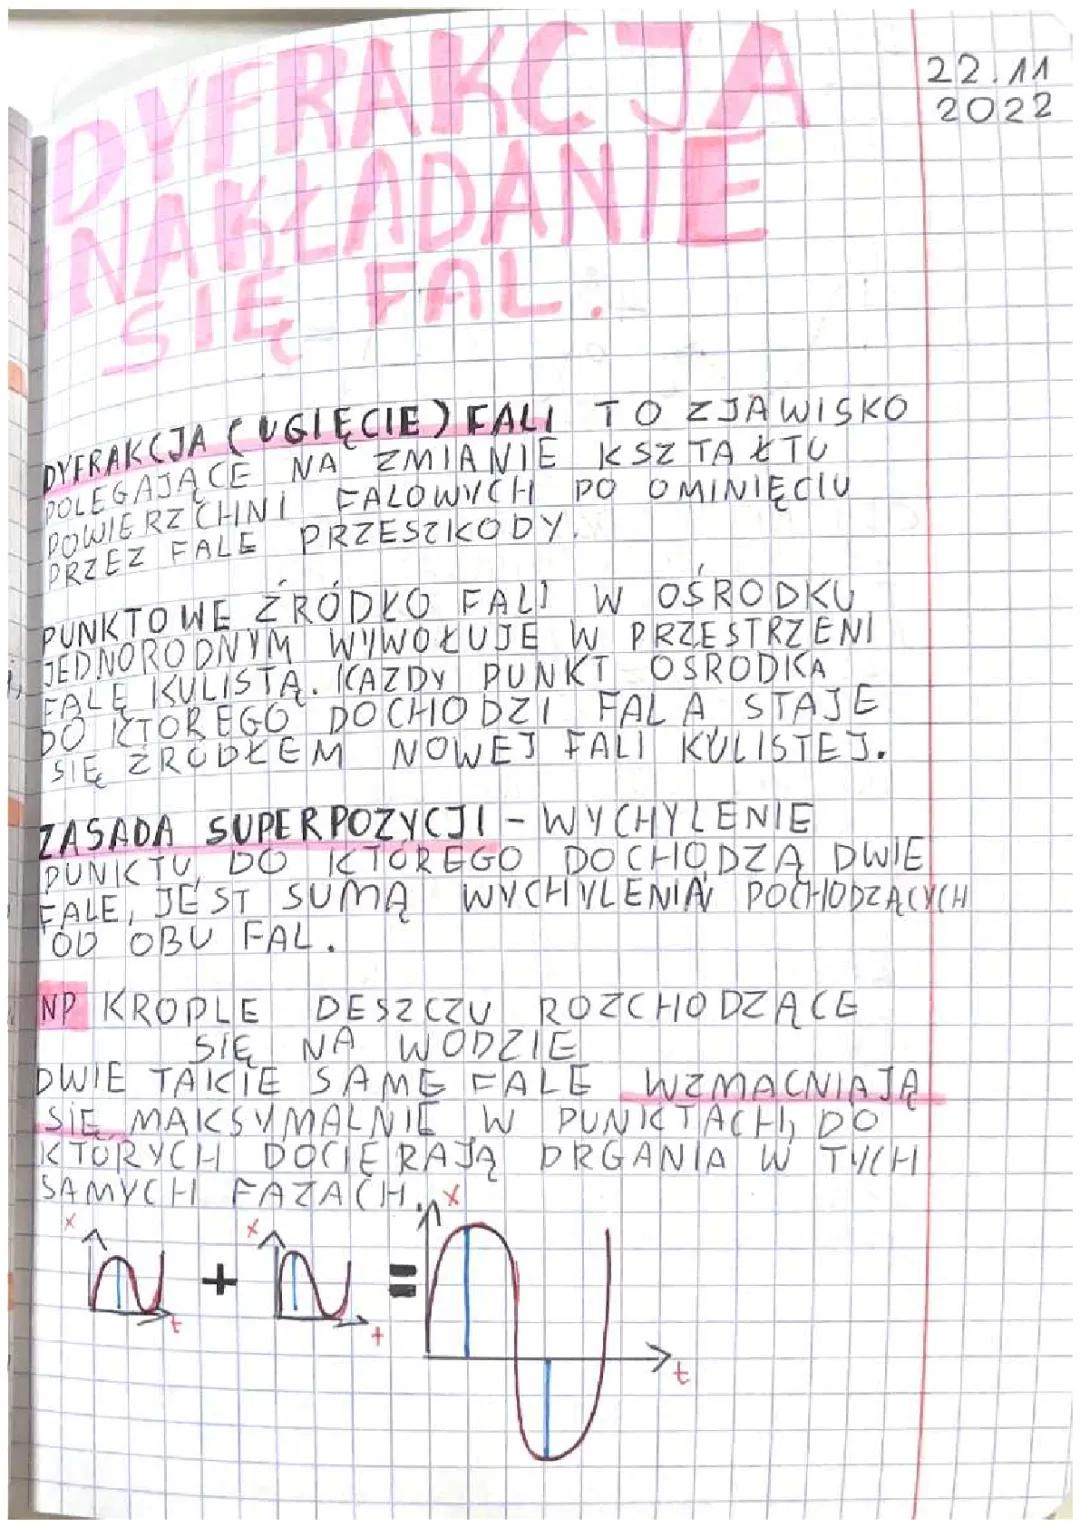 22.11
2022
DYFRAKCJA
NAKŁADANIE
SIĘ FAL.
DYFRAKCJA (UGIĘCIE) FALI TO ZJAWISKO
POLEGAJĄCE NA ZMIANIE KSZTAŁTU
POWIERZCHNI FALOWYCH PO OMINIĘCIU
PRZEZ FALE PRZESZKODY.
PUNKTOWE ŹRÓDŁO FALI W OŚRODKU
JEDNORODNYM WYWOŁUJE W PRZESTRZENI
FALĘ KULISTĄ. KAŻDY PUNKT OŚRODKA
DO KTÓREGO DOCHODZI FALA STAJE
SIĘ ŹRÓDŁEM NOWEJ FALI KULISTEJ.
ZASADA SUPERPOZYCJI - WYCHYLENIE
PUNKTU, DO KTÓREGO DOCHODZĄ DWIE
FALE, JEST SUMĄ WYCHYLENIA POCHODZĄCYCH
OD OBU FAL.
NP KROPLE DESZCZU ROZCHODZĄCE
SIĘ NA WODZIE
DWIE TAKIE SAME FALE WZMACNIAJĄ
SIĘ MAKSYMALNIE W PUNKTACH, DO
KTÓRYCH DOCIERAJĄ DRGANIA W TYCH
SAMYCH FAZACH.
x x x
+ =
t t t